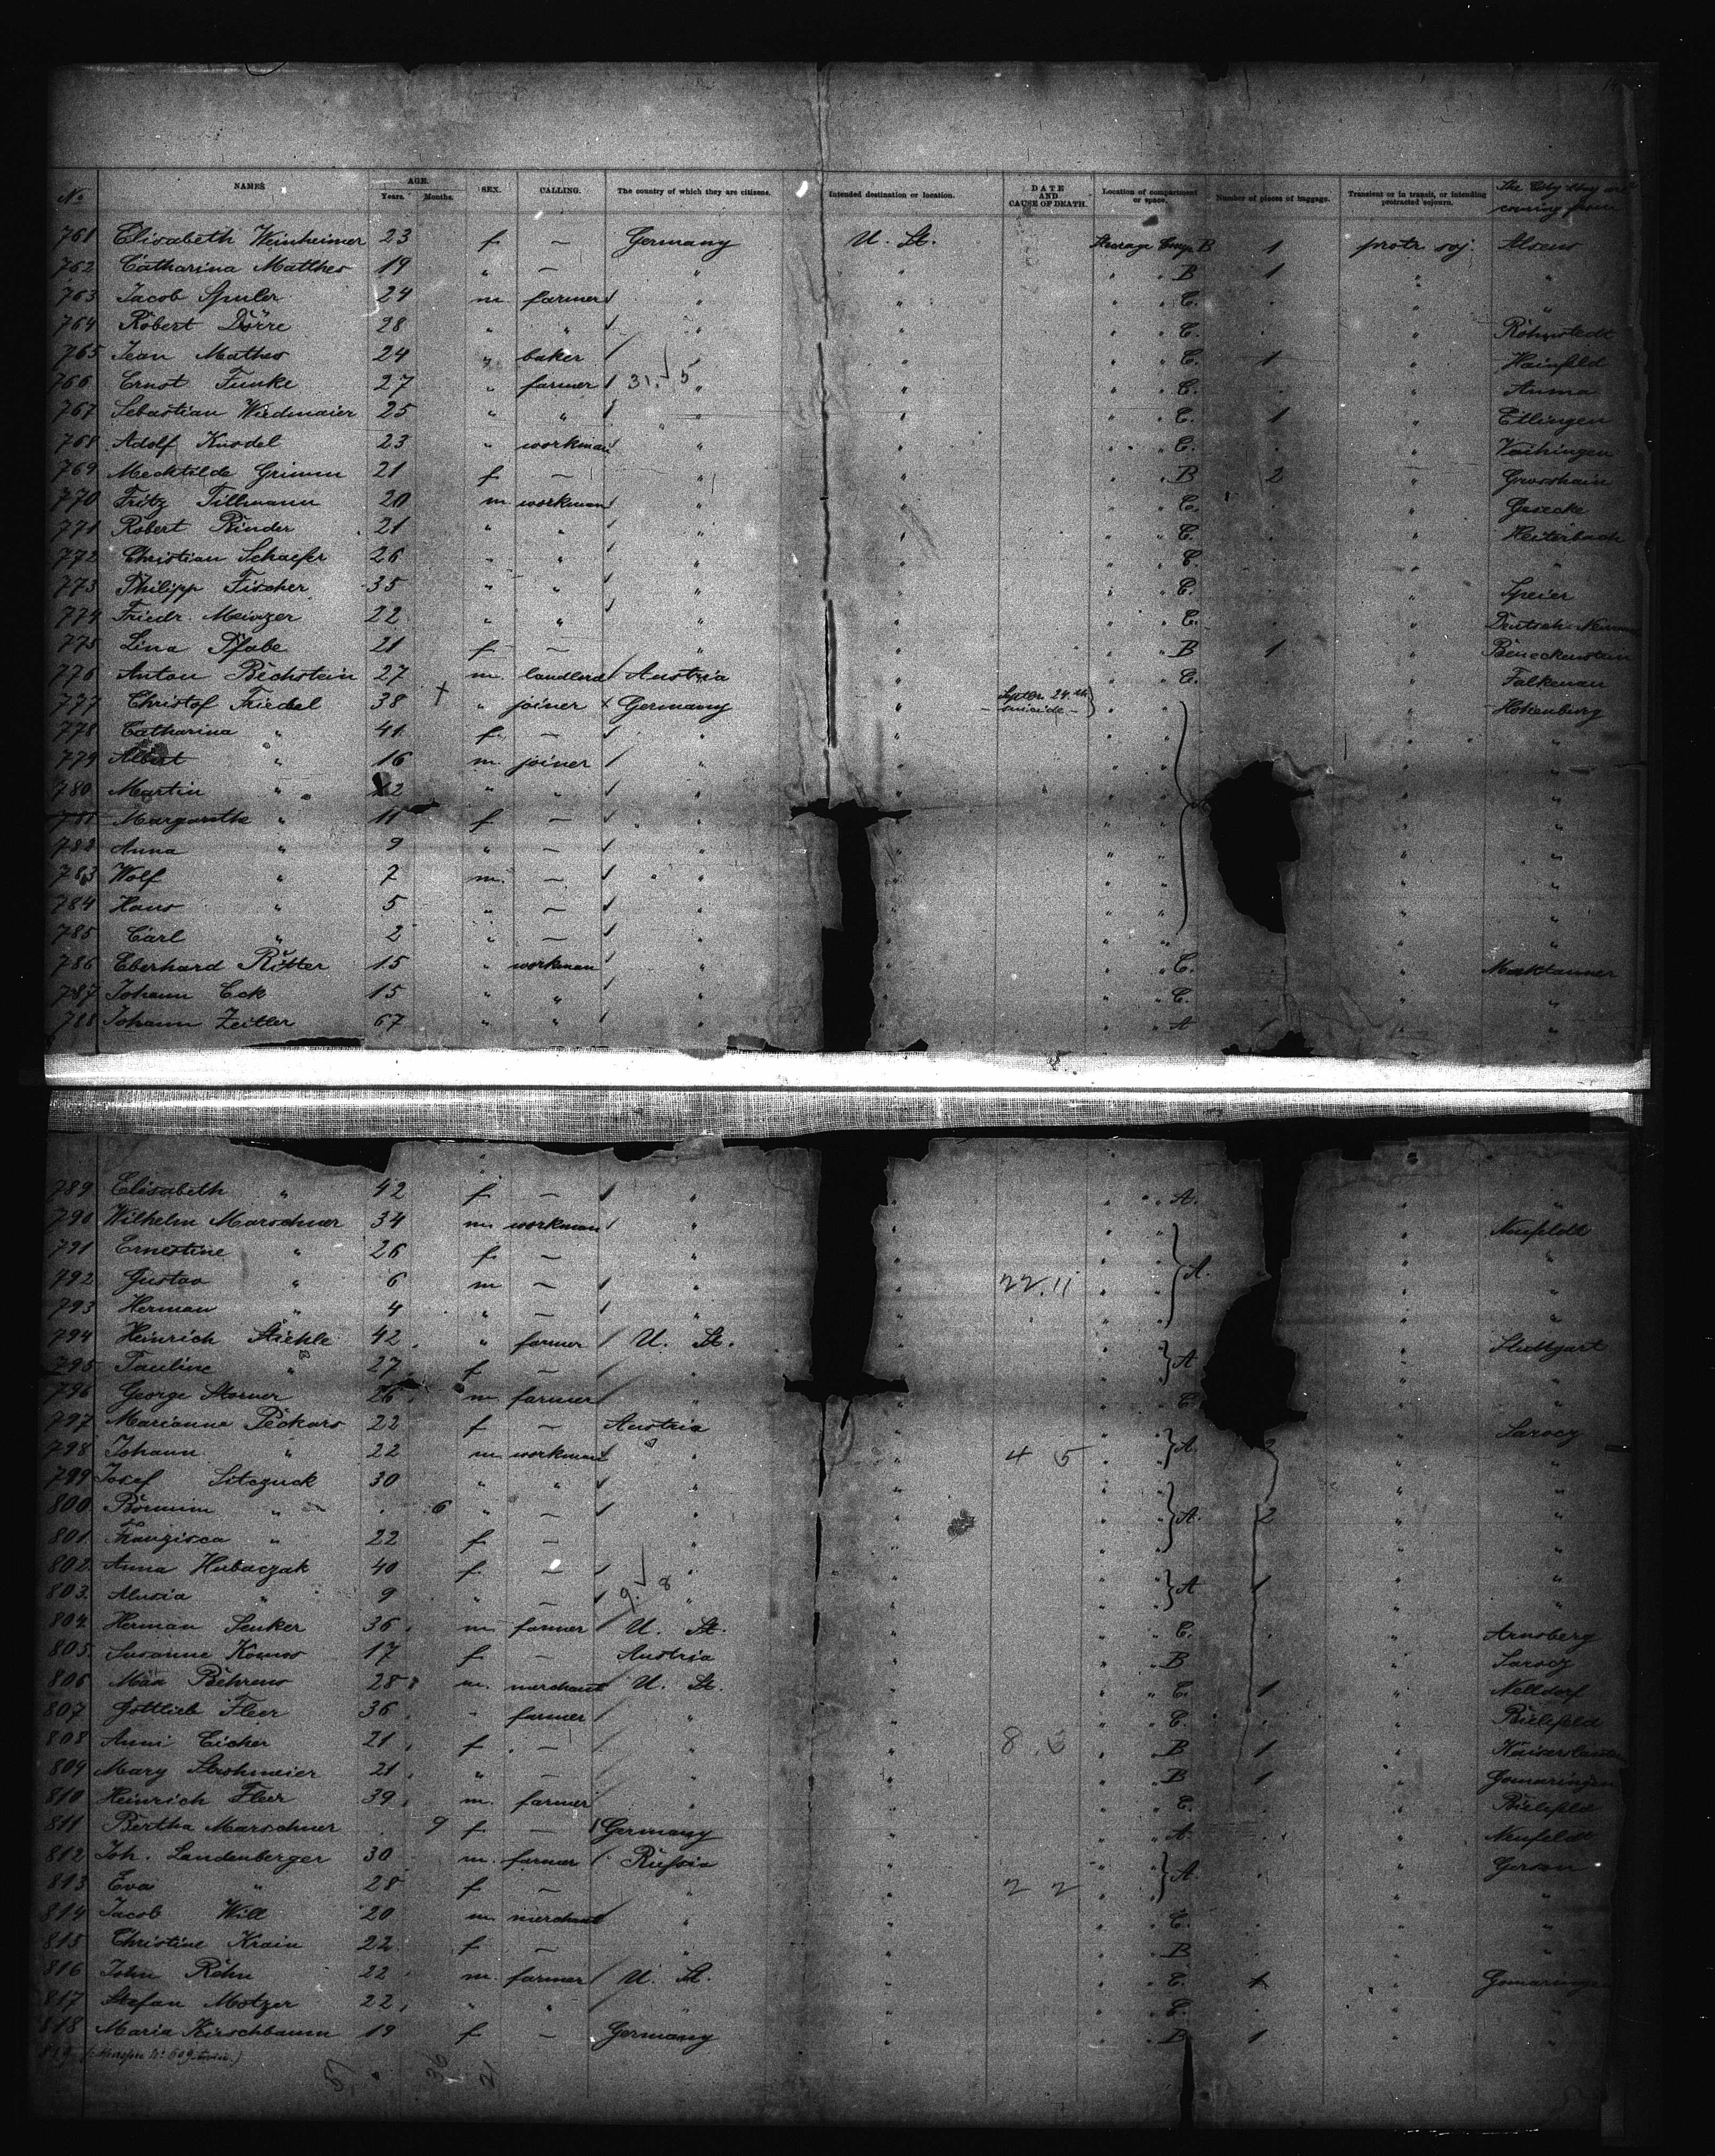 No. NAMES AGE. Years. Months. SEX. CALLING. The country of which they are citizens. Intended destination or location. DATE AND CAUSE OF DEATH. Location of compartment or space. Number of pieces of baggage. Transient or in transit, or intending protracted sojourn. The City they are coming from
761 Elisabeth Weinheimer 23 f — Germany U. St. Steerage Comp. B 1 protr. soj.
762 Catharina Matthes 19 " — " " " " B 1 "
763 Jacob Spuler 24 m farmer " " " " C. "
764 Robert Dörre 28 " " " " " " C. "
765 Jean Mathes 24 " baker " " " " C. 1 " Hainfeld
766 Ernst Funke 27 " farmer 31. 5 " " " " C. " Auma
767 Sebastian Wiedmaier 25 " " " " " " C. 1 " Ettlingen
768 Adolf Knodel 23 " workman " " " " C. " Vaihingen
769 Mechtilde Grimm 21 f — " " " " B 2 " Grosshain
770 Fritz Tillmann 20 m workman " " " " C. " Gesecke
771 Robert Rinder 21 " " " " " " C. " Heiterbach
772 Christian Schaefer 26 " " " " " " C. " "
773 Philipp Fischer 35 " " " " " " C. " Speier
774 Friedr. Meinzer 22 " " " " " " C. "
775 Lina Pfabe 21 f — " " " " B 1 " Beneckenstein
776 Anton Bechstein 27 m. landlord Austria " " " C. " Falkenau
777 Christof Friedel 38 + " joiner x Germany " Septbr. 24.th - suicide - " " " Hohenburg
778 Catharina " 41 f. — " " " " " "
779 Albert " 16 m. joiner " " " " " "
780 Martin " 12 " " " " " " " "
781 Margarethe " 11 f — " " " " " "
782 Anna " 9 " — " " " " " "
783 Wolf " 7 m. — " " " " " "
784 Hans " 5 " — " " " " " "
785 Carl " 2 " — " " " " " "
786 Eberhard Ritter 15 " workman " " " C. "
787 Johann Eck 15 " " " " " " C. " "
788 Johann Zeitler 67 " " " " " " A " "
789 Elisabeth " 42 f — " " " " A. " "
790 Wilhelm Marschner 34 m workman " " " " " Neufeldt
791 Ernestine " 26 f — " " " " " "
792 Gustav " 6 m — " " 22.11 " " A. " "
793 Herman " 4 " — " " " " " "
794 Heinrich Stiehle 42 " farmer U. St. " " " " Stuttgart
795 Pauline " 27 f — " " " " A " "
796 George Storner 26 m farmer " " " " C. " "
797 Marianne Peckars 22 f — Austria " " " " Sarocz
798 Johann " 22 m workman " " 4 5 " " A. 2 " "
799 Josef Sitczuck 30 " " " " " " " "
800 " 6 " — " " " " A. 2 " "
801. Franzisca " 22 f — " " " " " "
802. Anna Hubaczak 40 f — " " " " " "
803. " 9 " — 9. 8 " " " " A 1 " "
804 Herman Senker 36 m farmer U. St. " " " C. " Arnsberg
805. Susanne 17 f — Austria " " " B " Sarocz
806 Max Behrens 28 m. merchant U. St. " " " C. 1 " Nelldorf
807 Gottlieb Fleer 36 " farmer " " " " C. " Bielefeld
808 Anni Eicher 21 f. — " " 8. 6 " " B 1 "
809 Mary Strohmeier 21 " — " " " " B 1 " Gomaringen
810 Heinrich Fleer 39 m. farmer " " " " C. " Bielefeld
811 Bertha Marschner 9 f — Germany " " " A. " Neufeldt
812 Joh. Landenberger 30 m. farmer Russia " " " "
813 Eva " 28 f — " " 2 2 " " A. " "
814 Jacob Will 20 m. merchant " " " " C. " "
815 Christine Krain 22 f — " " " B " "
816 John Röhn 22 m. farmer U. St. " " C. 1 " Gomaringen
817 Stefan Motzer 22 " " " " " C. " "
818 Maria Kirschbaum 19 f — Germany " B 1 " "
819